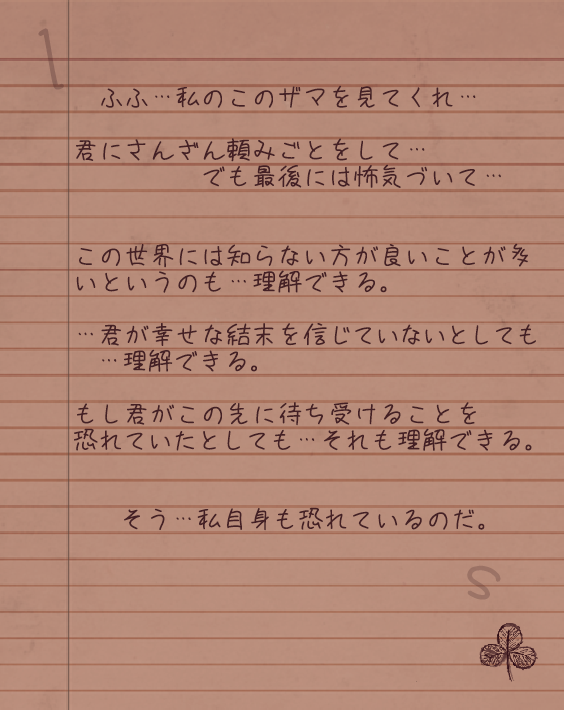 l
ふふ…私のこのザマを見てくれ…
君にさんざん頼みごとをして…
でも最後には怖気づいて…
この世界には知らない方が良いことが多
いというのも…理解できる。
…君が幸せな結末を信じていないとしても
…理解できる。
もし君がこの先に待ち受けることを
恐れていたとしても…それも理解できる。
そう…私自身も恐れているのだ。
s